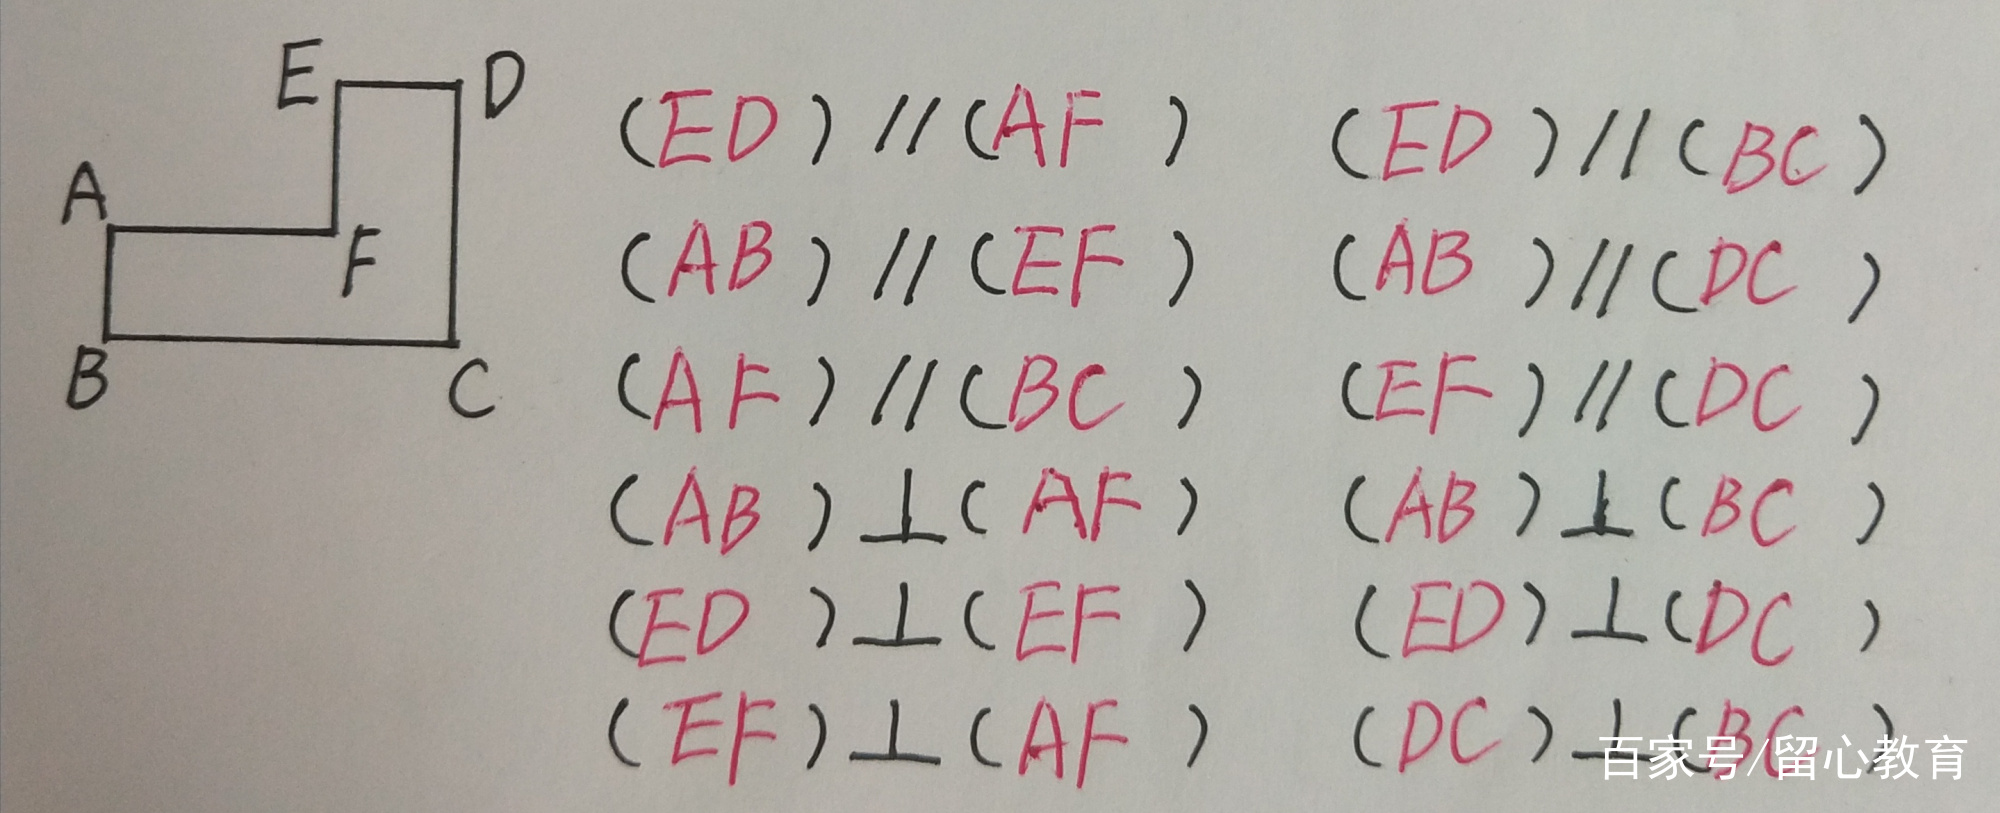 E D
A
F
B C
(ED) // (AF) (ED) // (BC)
(AB) // (EF) (AB) // (DC)
(AF) // (BC) (EF) // (DC)
(AB) ⊥ (AF) (AB) ⊥ (BC)
(ED) ⊥ (EF) (ED) ⊥ (DC)
(EF) ⊥ (AF) (DC) ⊥ (BC)
百家号/留心教育